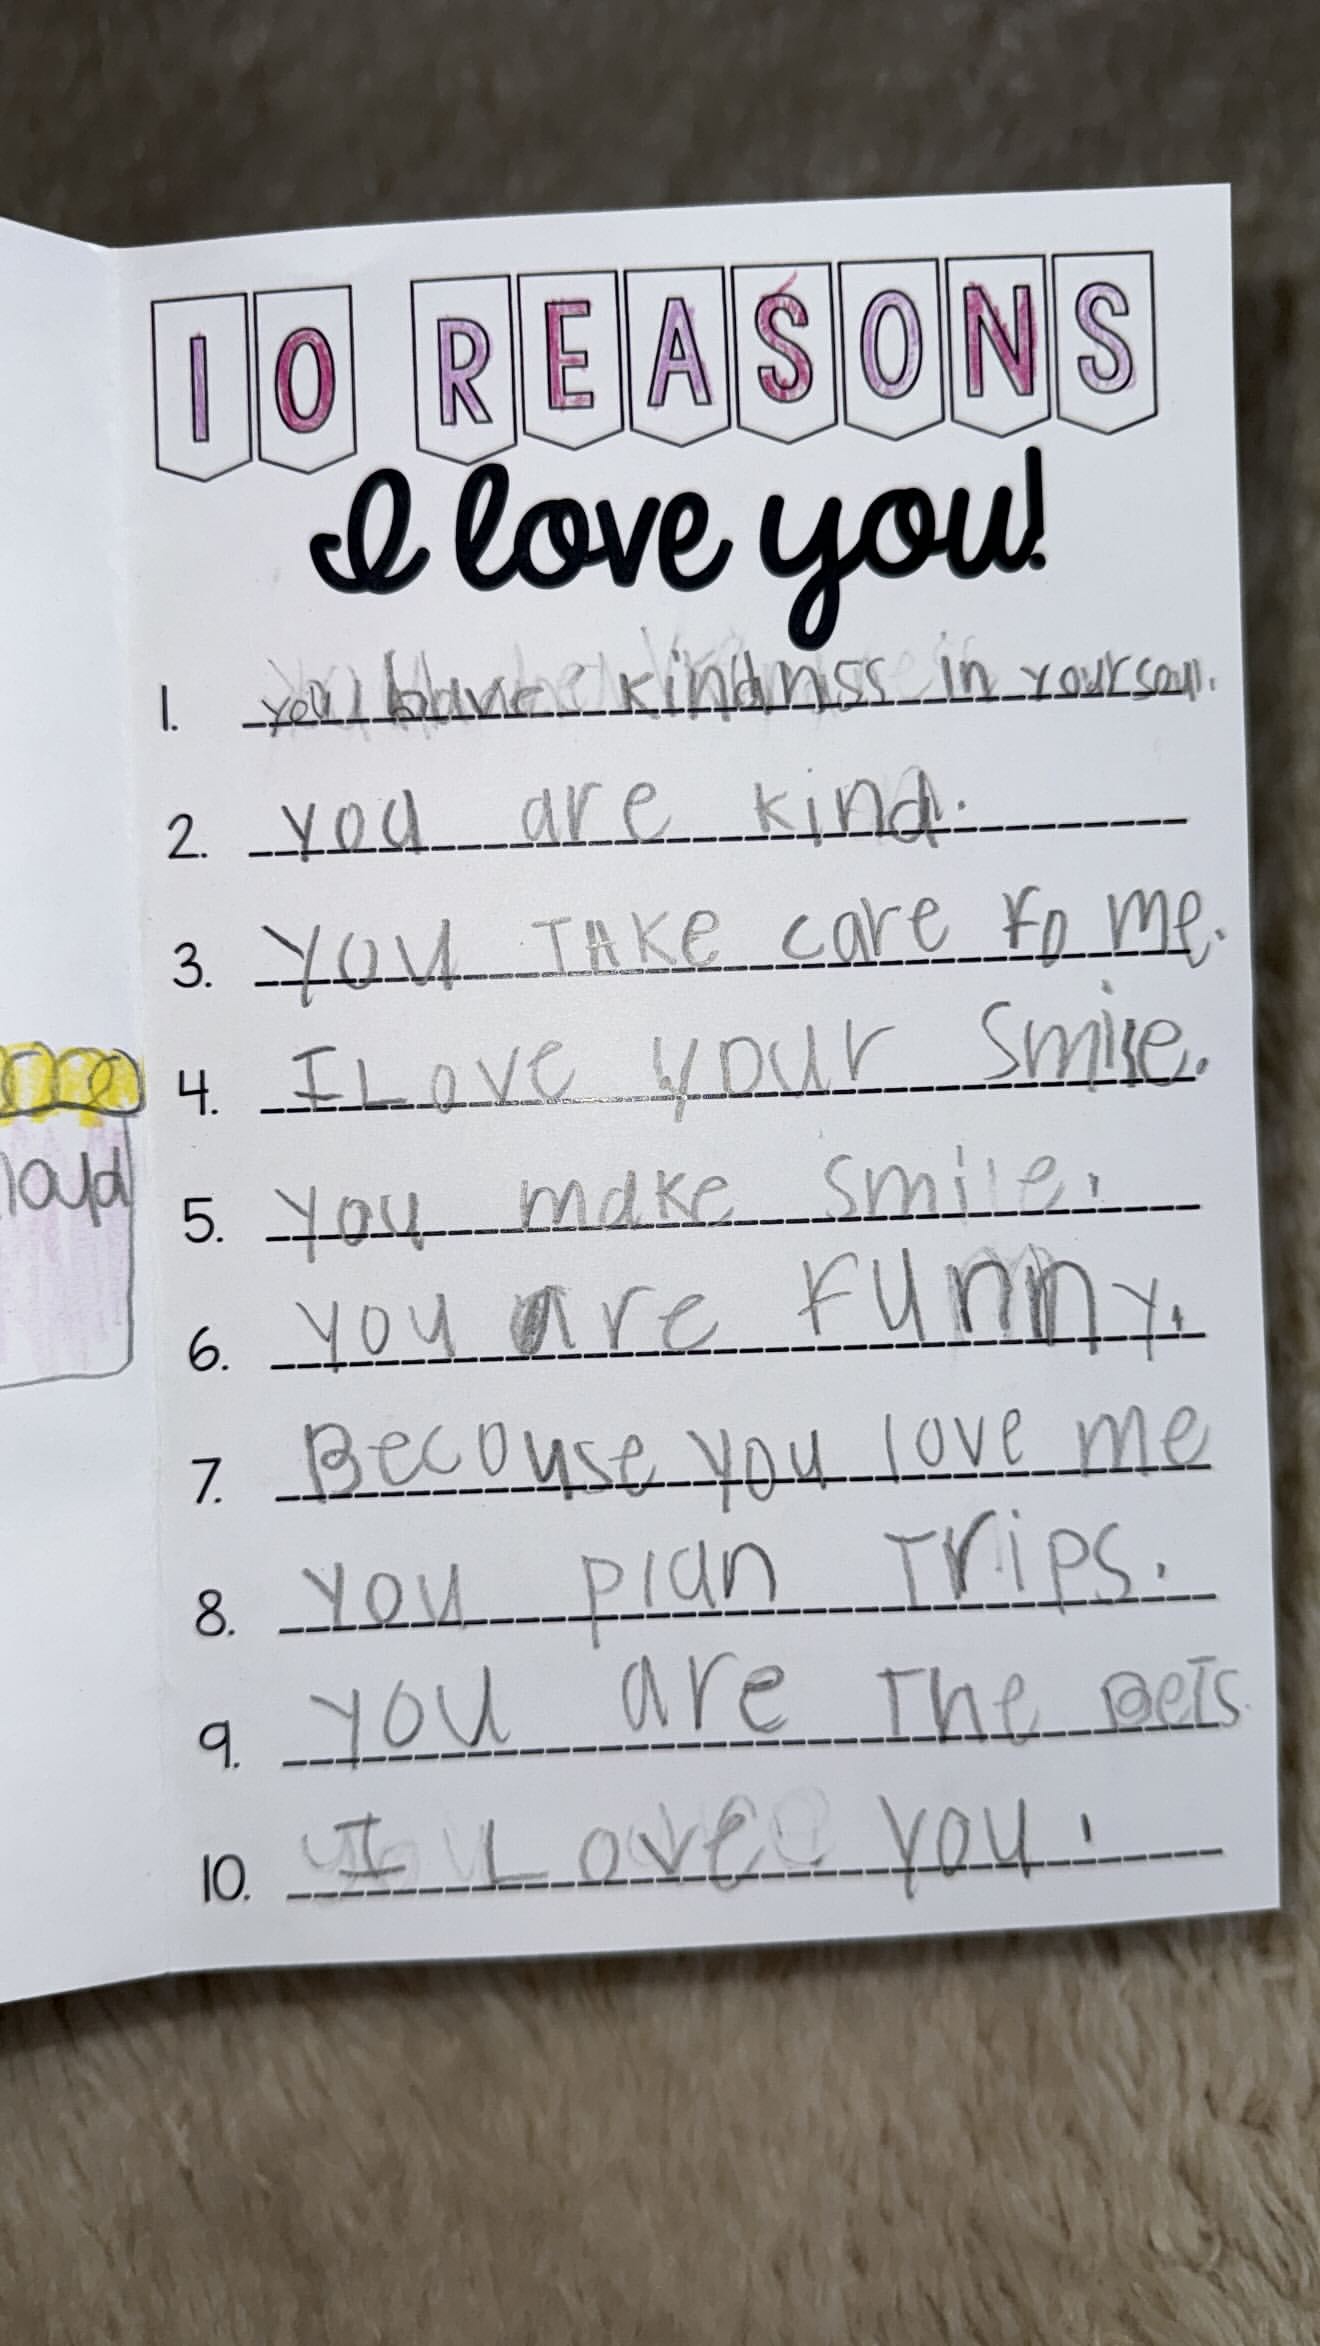 10 REASONS
I love you!
1. you have kindniss in your soul.
2. you are kind.
3. YOU TAKE care Fo me.
4. I Love your smile.
5. you make smile.
6. you are Funny.
7. Becouse you love me
8. you plan Trips.
9. you are The BeTs.
10. I Love you.